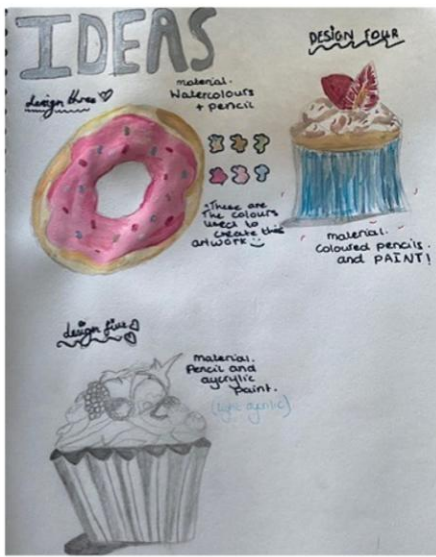 IDEAS
design three
material.
Watercolours
+ pencil
•These are
the colours
used to
create this
artwork
DESIGN FOUR
material.
Coloured pencils.
and PAINT!
design five
material.
Pencil and
aycrylic
paint.